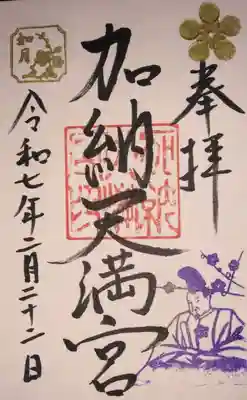 奉拝
加納天満宮
令和七年二月二十二日
如月